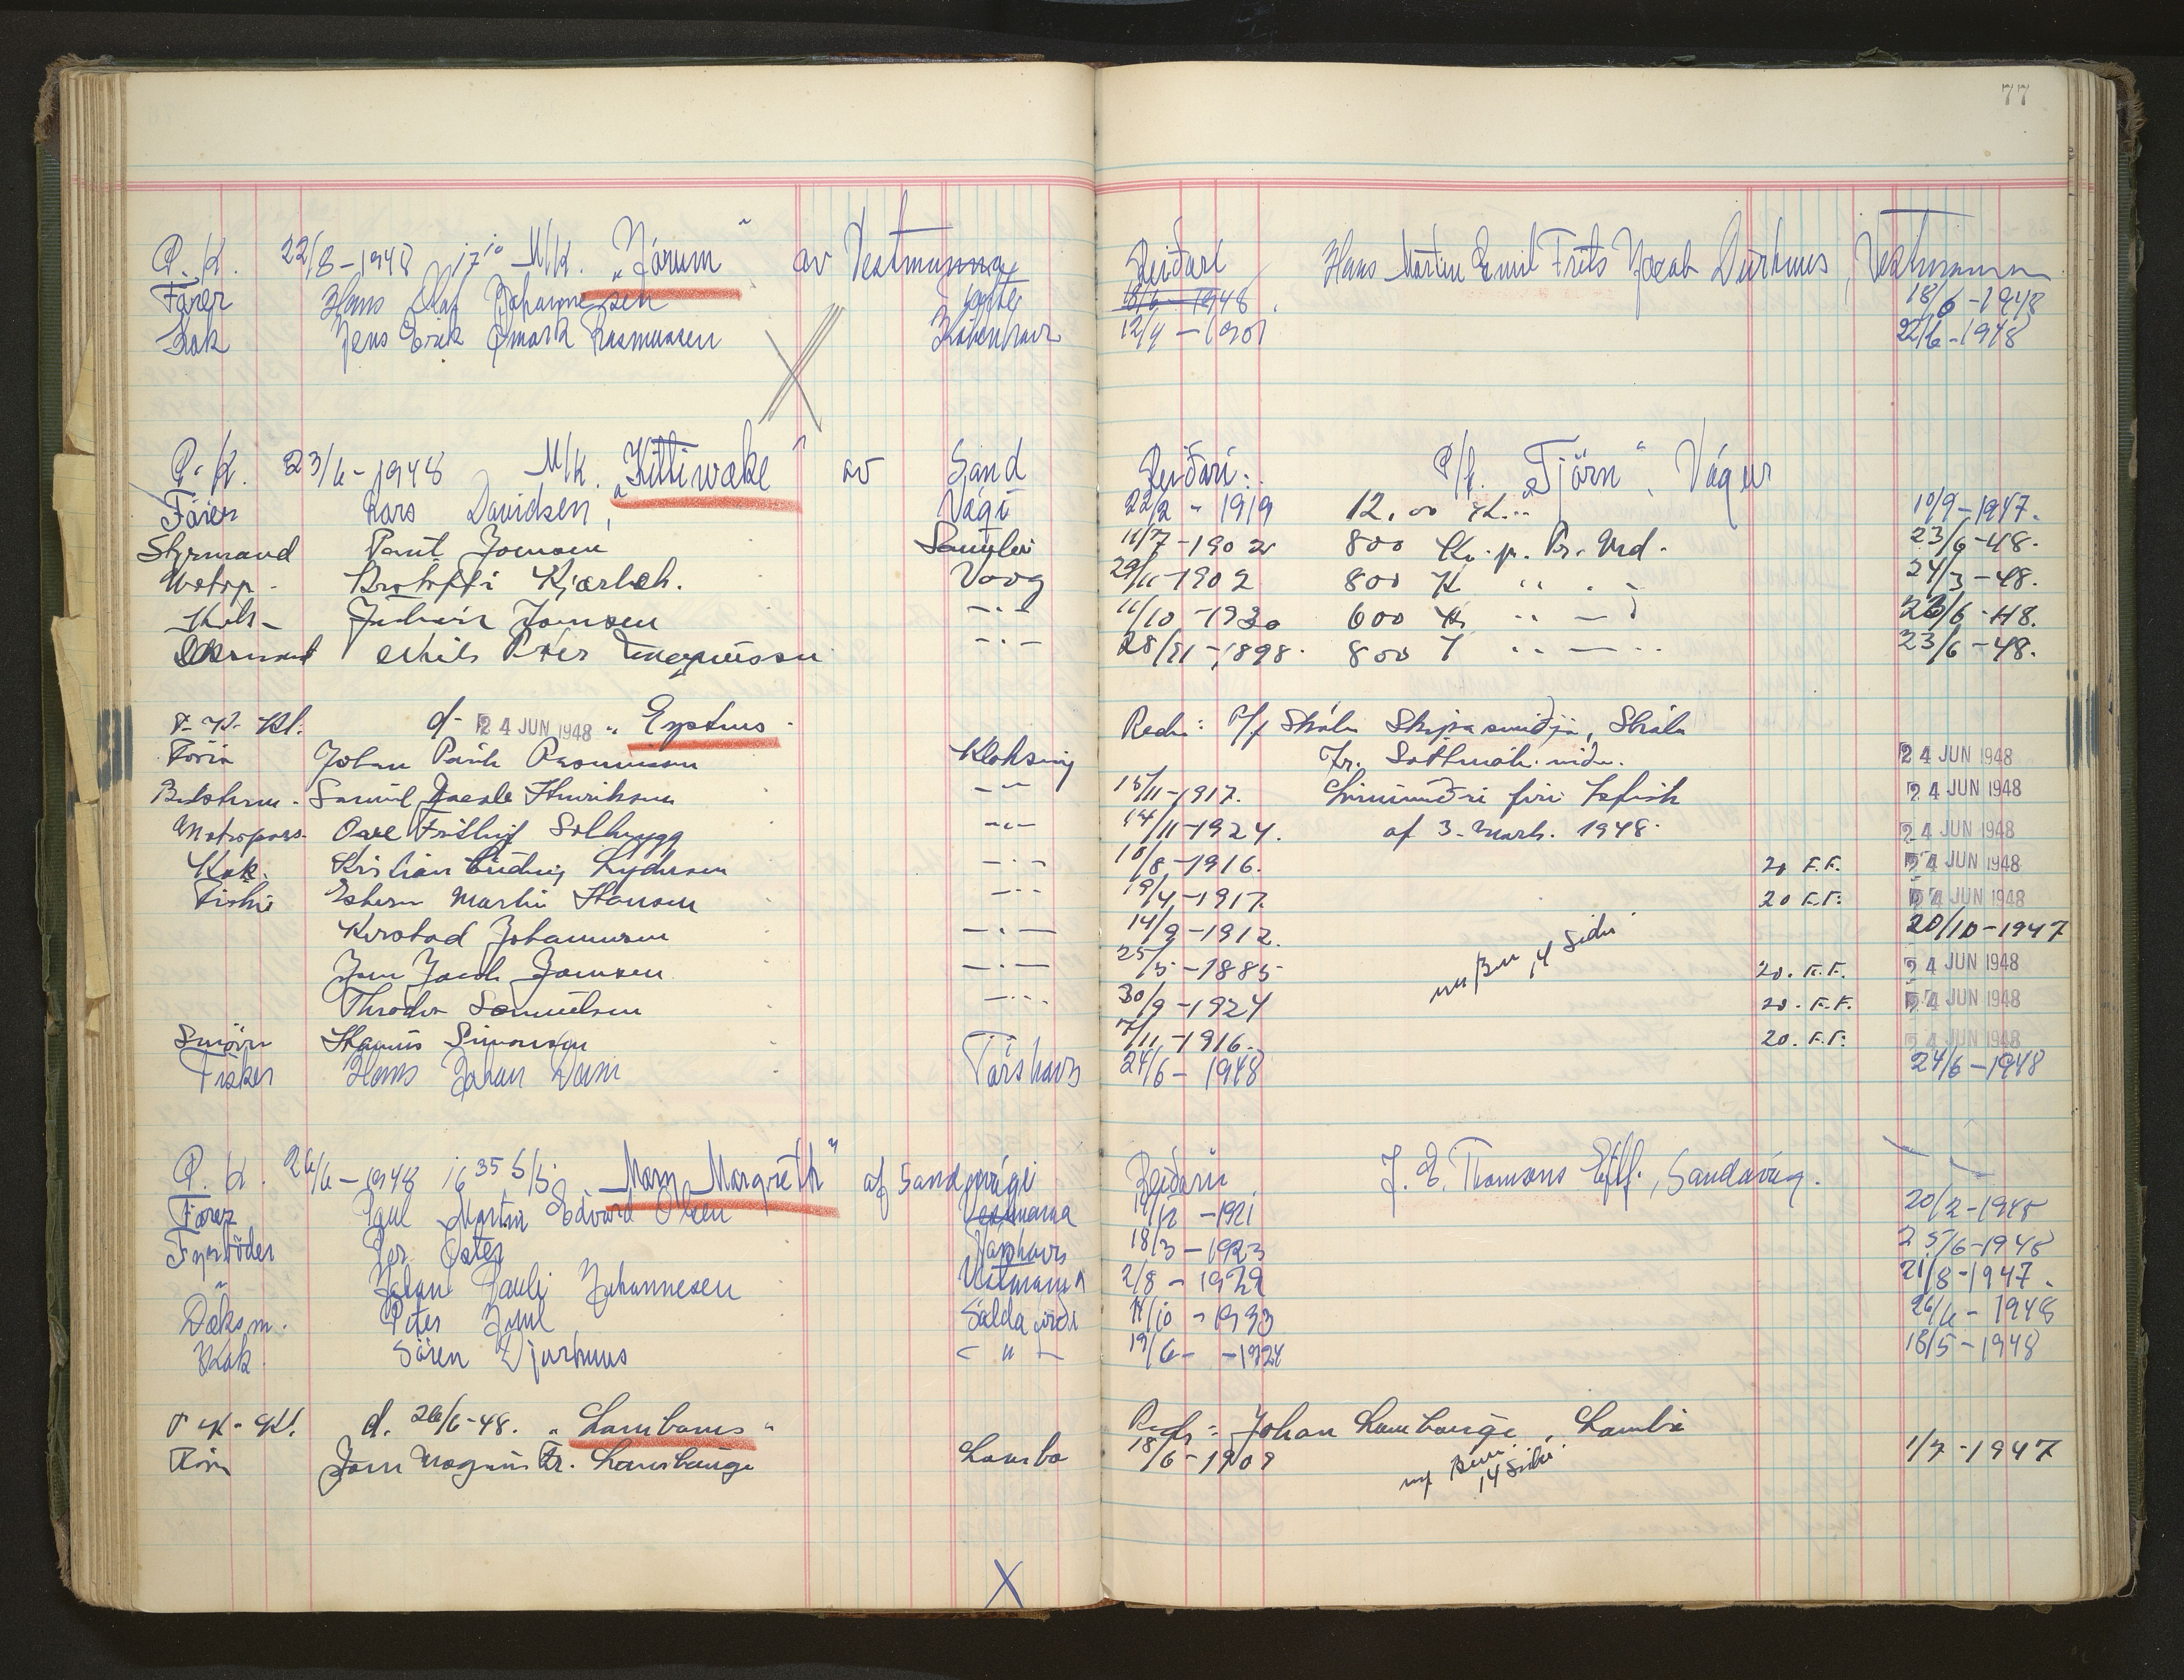 77
P. K. 22/6-1948 17 10 M/K. "Jórum" av Vestmanna Reiðarí Hans Martin Emil Frits Jacob Durhuus, Vestmanna
Förer Hans Olaf Johannesen 18/6-1948 18/6-1948
Kok Jens Erik Rasmussen Köbenhavn 12/4-1901 22/6-1948
P. K. 23/6-1948 M/K. "Kittiwake" av Sand Reiðari: P/f. "Tjörn", Vágur
Förer Lars Davidsen, Vági 22/2-1919 12,00 10/9-1947.
Styrmand Paul Joensen 11/7-1902 800 Kr. p. Md. 23/6-48.
Motorp. Kjærbech. Vaag 29/11-1902 800 K " 24/3-48.
Kok Joensen -"- 11/10-1930 600 Kr " 23/6-48.
Niels Peter Magnussen -"- 28/11-1898. 800 " 23/6-48.
P. K. Kl. d. 24 JUN 1948 "Eystnes" Redr: P/f Skála Skipasmiðja, Skála
Förir Johan Paula Rasmussen Klaksvig 24 JUN 1948
Bedstem. Samuel Jacob Henriksen -"- 15/11-1917. 24 JUN 1948
Motorpass. Carl Frithjof Solbrygg -"- 14/11-1924. af 3. Marts. 1948. 24 JUN 1948
Kok. Kristian Ludvig Lydersen -"- 10/8-1916. 20 F.F. 24 JUN 1948
Fiski Esbern Martin Hansen -"- 19/4-1917. 20 F.F. 24 JUN 1948
Johannesen -"- 14/9-1912. 20/10-1947
Jens Jacob Joensen -"- 25/5-1885 14 Sidu 20. F.F. 24 JUN 1948
Theodor Samuelsen -"- 30/9-1924 20. F.F. 24 JUN 1948
Hannis Simonsen -"- 7/11-1916. 20. F.F. 24 JUN 1948
Fisker Hans Johan Dam Tórshavn 24/6-1948 24/6-1948
P. K. 26/6-1948 16 35 S/S. "Marn Margreth" af Sandavági Reiðarín J. E. Thomsens Eftf., Sandavág.
Förer Paul Martin Edvard Olsen Vestmanna 14/12-1921 20/2-1948
Fyrböder Per Oster 18/3-1923 25/6-1948
" Johan Pauli Johannesen Vestmanna 2/8-1929 21/8-1947.
Dæksm. Peter Juul 14/10-1933 26/6-1948
Kok Sören Djurhuus -"- 19/6-1924 18/5-1948
P. K. Kl. d. 26/6-48. "Lambanes" Redr: Johan Lambauge, Lamba
Förir Jens Magnus Fr. Lambauge Lamba 18/6-1909 14 Sidu 1/7-1947
X